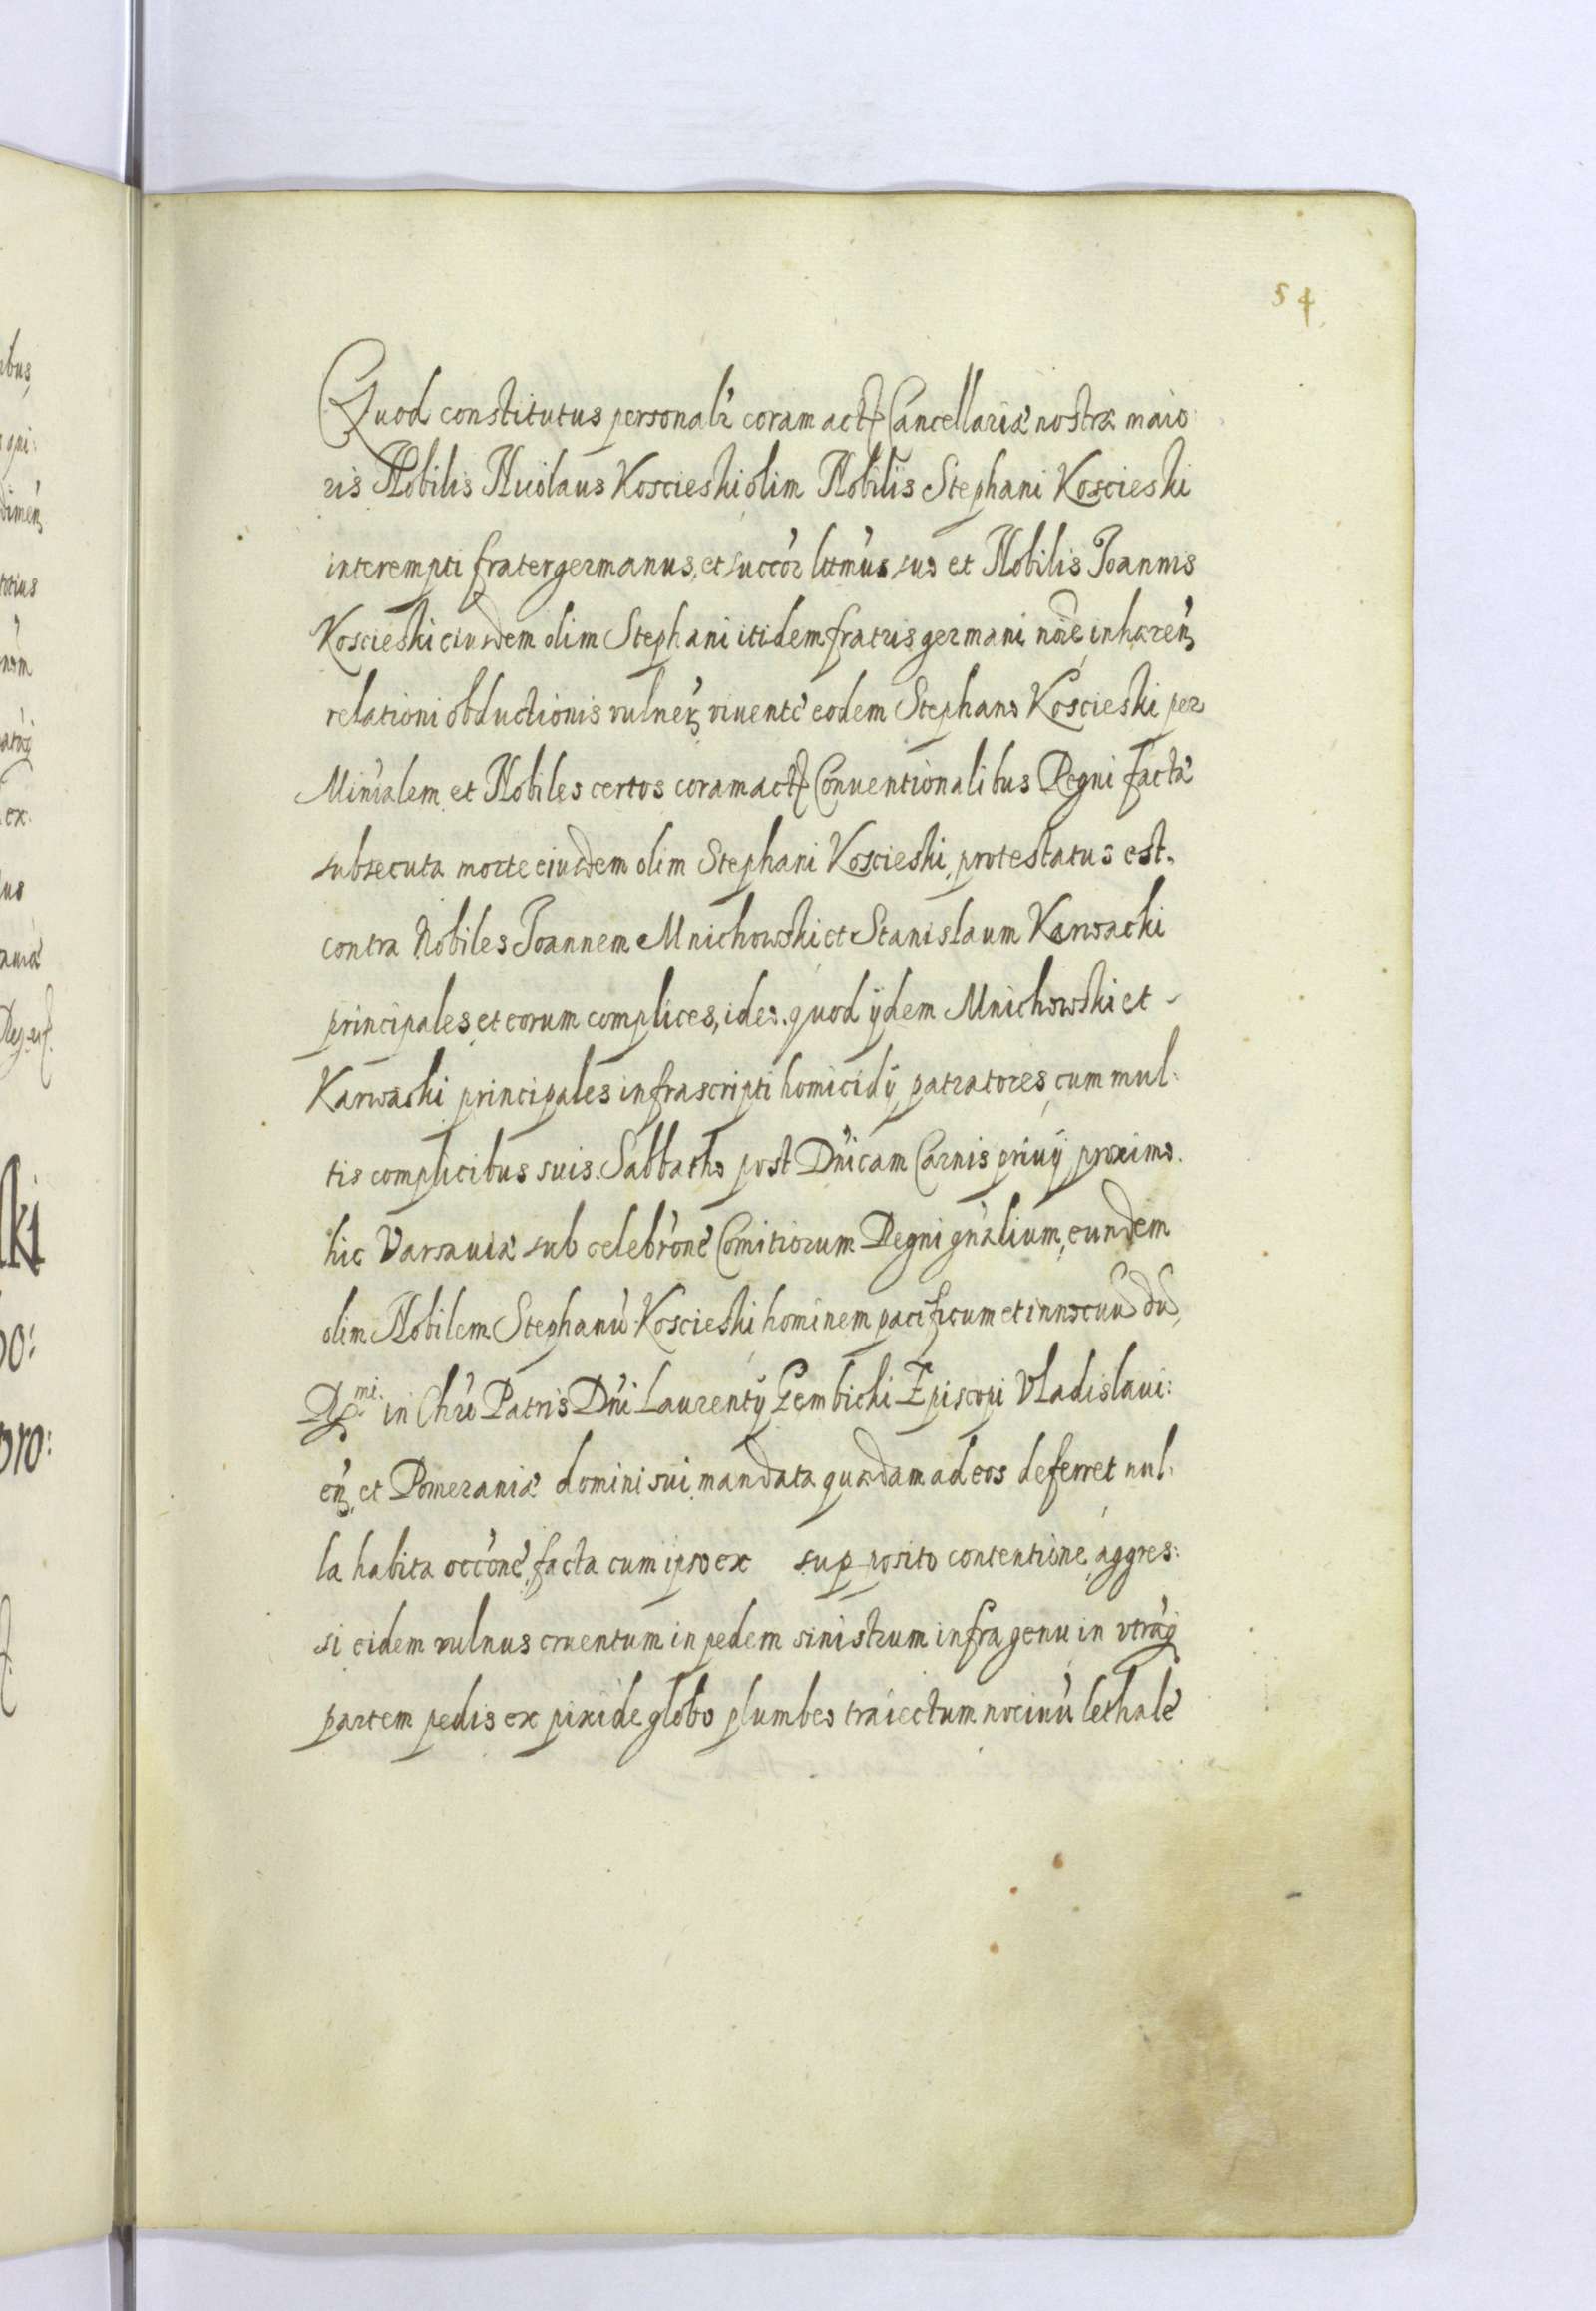 54
Quod constitutus personalr̃ coram actis Cancellariæ nostræ maio:
ris Nobilis Nicolaus Koscieski olim Nobilis Stephani Koscieski
interempti frater germanus, et succor̃ ltt̃mus suo et Nobilis Joannis
Koscieski eiusdem olim Stephani itidem fratris germani nõiẽ, inhæreñ
relationi obductionis vulner̃ viuentẽ eodem Stephano Koscieski per
Miniãlem, et Nobiles certos coram actis Conuentionalibus Regni factæ
subsecuta morte eiusdem olim Stephani Koscieski, protestatus est,
contra Nobiles Joannem Mnichowski et Stanislaum Karwacki
principales, et eorum complices, ideo. quod ijdem Mnichowski et ~
Karwacki principales infrascripti homicidij patratores, cum mul:
tis complicibus suis. Sabbatho post Dñicam Carnis priuij proximo.
hic Varsauiæ sub celebrõnẽ Comitiorum Regni gñalium, eundem
olim Nobilem Stephanũ Koscieski hominem pacificum et innocuũ dũ
Rmi. in Chrõ Patris Dñi Laurentij Gembicki Episcopi Vladislaui:
eñ, et Pomeraniæ domini sui, mandata quædam ad eos deferret nul:
la habita occõnẽ, facta cum ipso ex supposito contentione, aggres:
si eidem vulnus cruentum in pedem sinistrum infra genu in vtrãq
partem pedis ex pixide globo plumbeo traiectum nociuũ lethalẽ